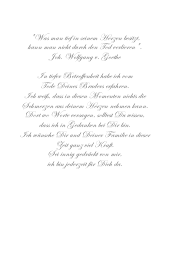 "Was man tief in seinem Herzen besitzt,
kann man nicht durch den Tod verlieren".
Joh. Wolfgang v. Goethe
In tiefer Betroffenheit habe ich vom
Tode Deines Bruders erfahren.
Ich weiß, dass in diesen Momenten nichts die
Schmerzen aus deinem Herzen nehmen kann.
Dort wo Worte versagen, solltest Du wissen,
dass ich in Gedanken bei Dir bin.
Ich wünsche Dir und Deiner Familie in dieser
Zeit ganz viel Kraft.
Sei innig gedrückt von mir,
ich bin jederzeit für Dich da.